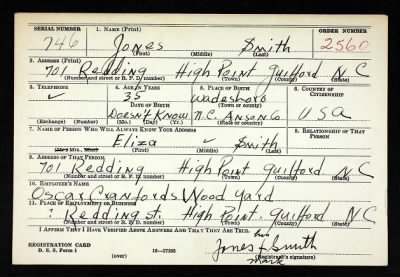 SERIAL NUMBER 1. NAME (Print) ORDER NUMBER
746 Jones Smith 2560
(First) (Middle) (Last)
2. ADDRESS (Print)
701 Redding High Point Guilford N C
(Number and street or R. F. D. number) (Town) (County) (State)
3. TELEPHONE 4. AGE IN YEARS 5. PLACE OF BIRTH 6. COUNTRY OF CITIZENSHIP
35 Wadesboro
DATE OF BIRTH (Town or county)
Doesn't Know N.C. Anson Co U S A
(Exchange) (No.) (Mo.) (Day) (Yr.) (State or country)
7. NAME OF PERSON WHO WILL ALWAYS KNOW YOUR ADDRESS 8. RELATIONSHIP OF THAT PERSON
Eliza Smith
(Mr., Mrs., Miss) (First) (Middle) (Last)
9. ADDRESS OF THAT PERSON
701 Redding High Point Guilford N C
(Number and street or R. F. D. number) (Town) (County) (State)
10. EMPLOYER'S NAME
Oscar Cranfords Wood Yard
11. PLACE OF EMPLOYMENT OR BUSINESS
? Redding St. High Point. Guilford N C
(Number and street or R. F. D. number) (Town) (County) (State)
I AFFIRM THAT I HAVE VERIFIED ABOVE ANSWERS AND THAT THEY ARE TRUE.
his
Jones + Smith
REGISTRATION CARD
D. S. S. Form 1 16—17105 (Registrant's signature)
mark